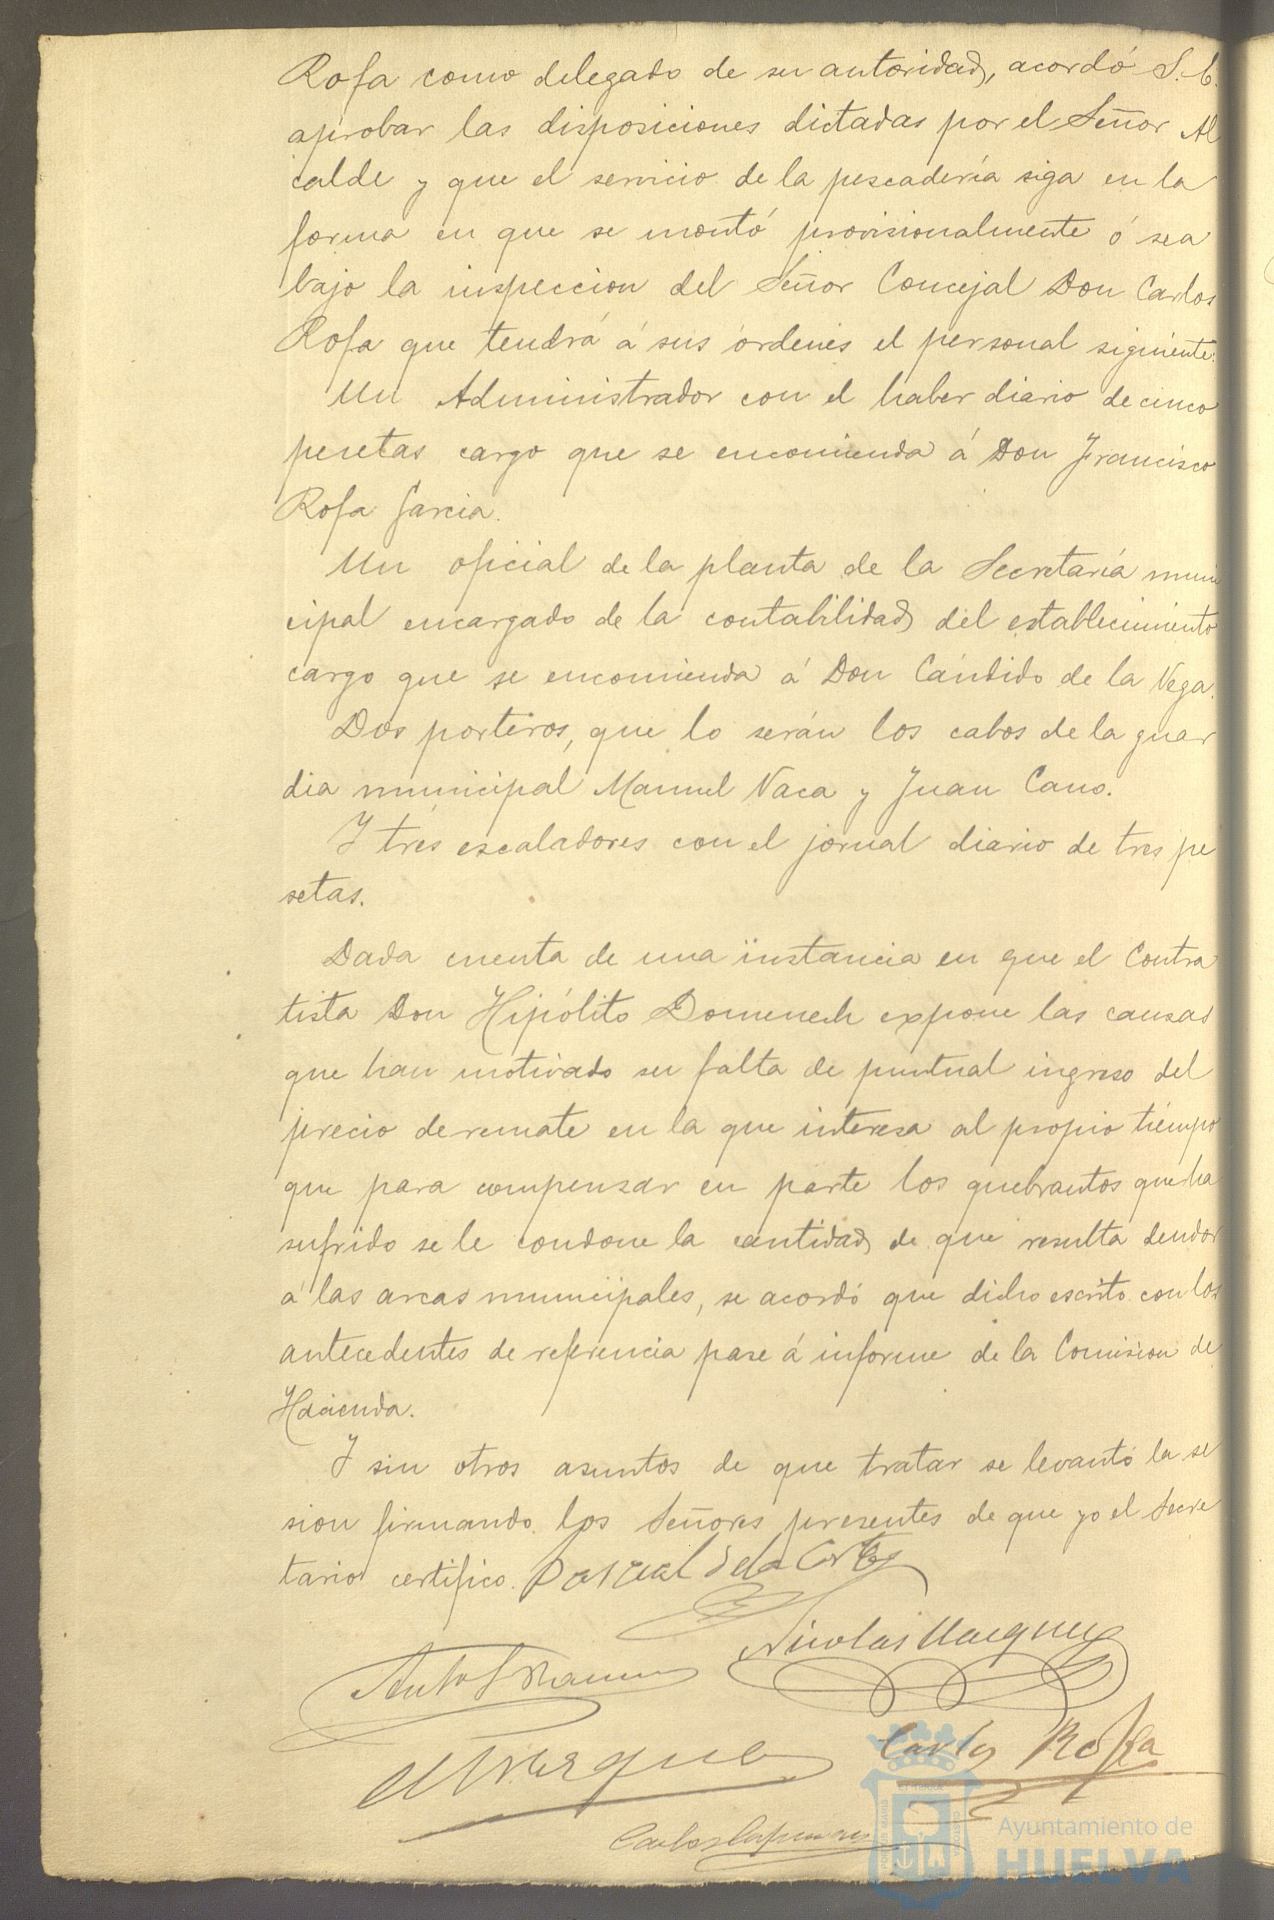 Rofa como delegado de su autoridad, acordó S. E.
aprobar las disposiciones dictadas por el Señor Al
calde y que el servicio de la pescadería siga en la
forma en que se montó provisionalmente ó sea
bajo la inspeccion del Señor Concejal Don Carlos
Rofa que tendrá á sus órdenes el personal siguiente:
Un Administrador con el haber diario de cinco
pesetas cargo que se encomienda á Don Francisco
Rofa Garcia.
Un oficial de la planta de la Secretaría muni
cipal encargado de la contabilidad del establecimiento
cargo que se encomienda á Don Cándido de la Vega.
Dos porteros, que lo serán los cabos de la guar
dia municipal Manuel Vaca y Juan Cano.
Y tres escaladores con el jornal diario de tres pe
setas.
Dada cuenta de una instancia en que el Contra
tista Don Hipólito Domenech expone las causas
que han motivado su falta de puntual ingreso del
precio de remate en la que interesa al propio tiempo
que para compensar en parte los quebrantos que ha
sufrido se le condone la cantidad de que resulta deudor
á las arcas municipales, se acordó que dicho escrito con los
antecedentes de referencia pase á informe de la Comision de
Hacienda.
Y sin otros asuntos de que tratar se levantó la se
sion firmando los Señores presentes de que yo el Secre
tario certifico. Pascual de la Corte
Nicolas Vazquez
Carlos Rofa
Carlos
Ayuntamiento de
HUELVA